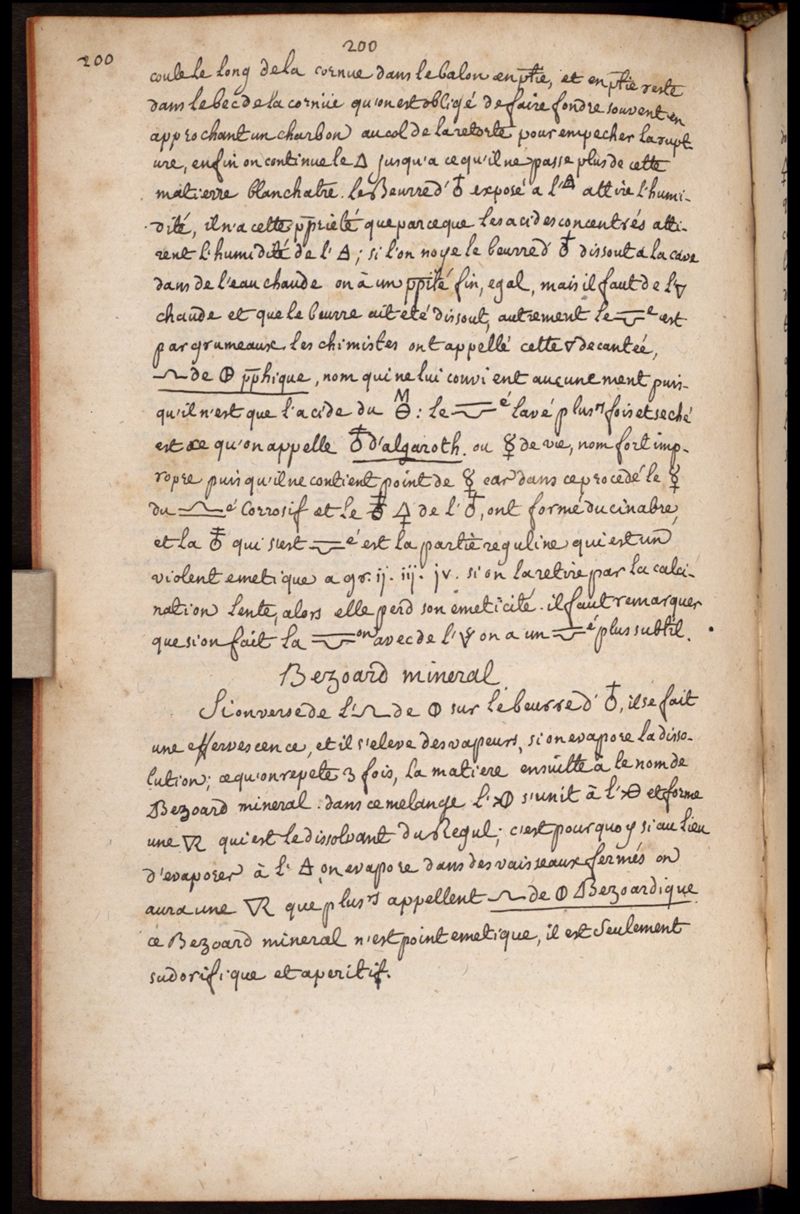 200
200
coule le long de la cornue dans le balon en ptie, et en ptie reste
dans le bec de la cornüe qu'on est obligé de faire fondre souvent en
approchant un charbon au col de la retorte pour empecher la rupt-
ure, enfin on continue le 🜂 jusqu'a ce qu'il ne passe plus de cette
matierre blanchatre. le Beurre d'♁ exposé a l'🜁 attire l'humi-
dité, il n'a cette pprieté que parceque les acides concentrés atti-
rent l'humidité de l'🜁; si l'on noye le beurre d'♁ dissout a la cave
dans de l'eau chaude on à un ppité fin, egal, mais il faut de l'▽
chaude et que le beurre ait eté dissout, autrement le é est
par grumeaux. les chimistes ont appellé cette ▽ decantée,
de 🜕 pphique, nom qui ne lui convient aucunement puis-
qu'il n'est que l'acide du M🜔: le é lavé plusrs fois et seché
est ce qu'on appelle ♁ d'algaroth. ou ☿ de vie, nom fort imp-
ropre puis qu'il ne contient point de ☿ car dans ce procedé le ☿
du é Corrosif et le 🜍 de l'♁, ont formé du cinabre,
et la ♁ qui s'est é est la partie reguline qui est un
violent emetique a gr. ij. iij. jv. si on la retire par la calci-
nation lente, alors elle perd son emeticité. il faut remarquer
que si on fait la on avec de l' on a un é plus subtil.
Bezoard mineral
Si on verse de l' de 🜕 sur le beurre d'♁, il se fait
une effervescence, et il s'eleve des vapeurs, si on evapore la disso-
lution; ce qu'on repete 3 fois, la matiere ensuitte à le nom de
Bezoard mineral. dans ce melange l' s'unit à l' et forme
une 🜆 qui est le dissolvant du Regul; c'est pourquoy si au lieu
d'evaporer à l'🜁 on evapore dans des vaisseaux fermés on
aura une 🜆 que plusrs appellent de 🜕 Bezoardique
ce Bezoard mineral n'est point emetique, il est seulement
sudorifique et aperitif.